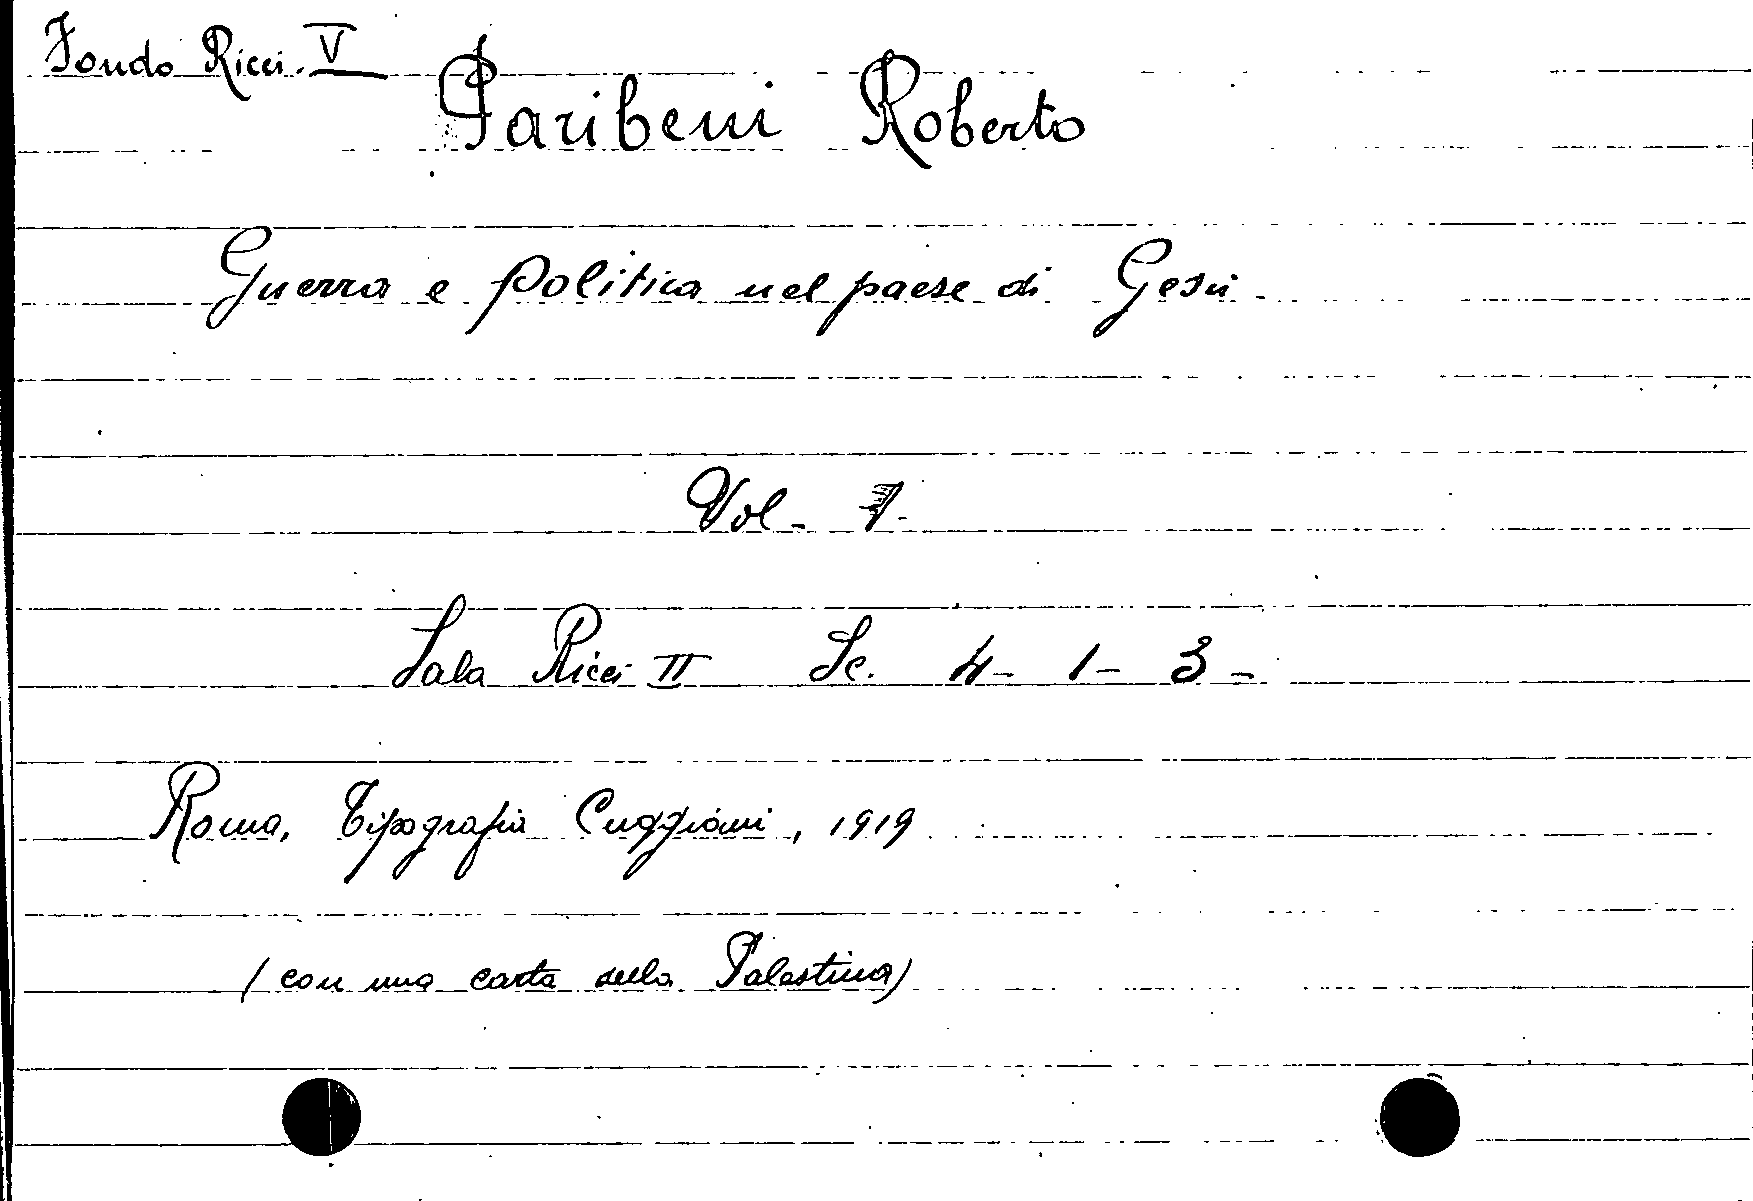 Fondo Ricci. V
Paribeni Roberto
Guerra e politica nel paese di Gesù -
Vol - 1 -
Sala Ricci II Sc. 4 - 1 - 3 -
Roma, Tipografia Cuggiani, 1919
(con una carta della Palestina)